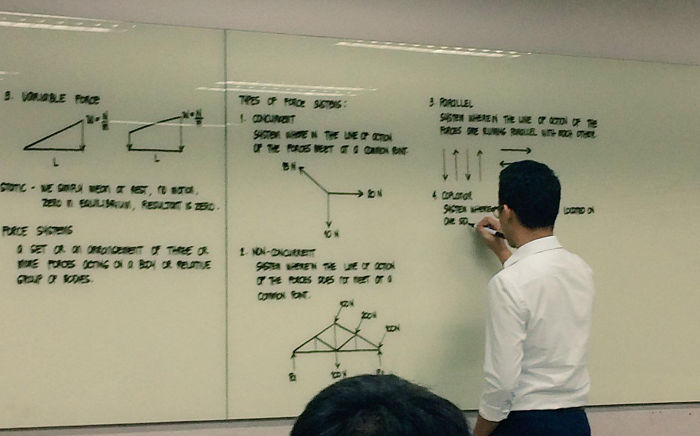 3. VARIABLE FORCE
W = N/m
W = N/m
L
L
STATIC - WE SIMPLY MEAN AT REST, NO MOTION,
ZERO IN EQUILIBRIUM, RESULTANT IS ZERO.
FORCE SYSTEMS
A SET OR AN ARRANGEMENT OF THREE OR
MORE FORCES ACTING ON A BODY OR RELATIVE
GROUP OF BODIES.
TYPES OF FORCE SYSTEMS:
1. CONCURRENT
SYSTEM WHERE IN THE LINE OF ACTION
OF THE FORCES MEET AT A COMMON POINT.
15 N
20 N
10 N
2. NON-CONCURRENT
SYSTEM WHEREIN THE LINE OF ACTION
OF THE FORCES DOES NOT MEET AT A
COMMON POINT.
100N
200N
100N
100 N
3. PARALLEL
SYSTEM WHEREIN THE LINE OF ACTION OF THE
FORCES ARE RUNNING PARALLEL WITH EACH OTHER.
4. COPLANAR
SYSTEM WHERE LOCATED ON
ONE